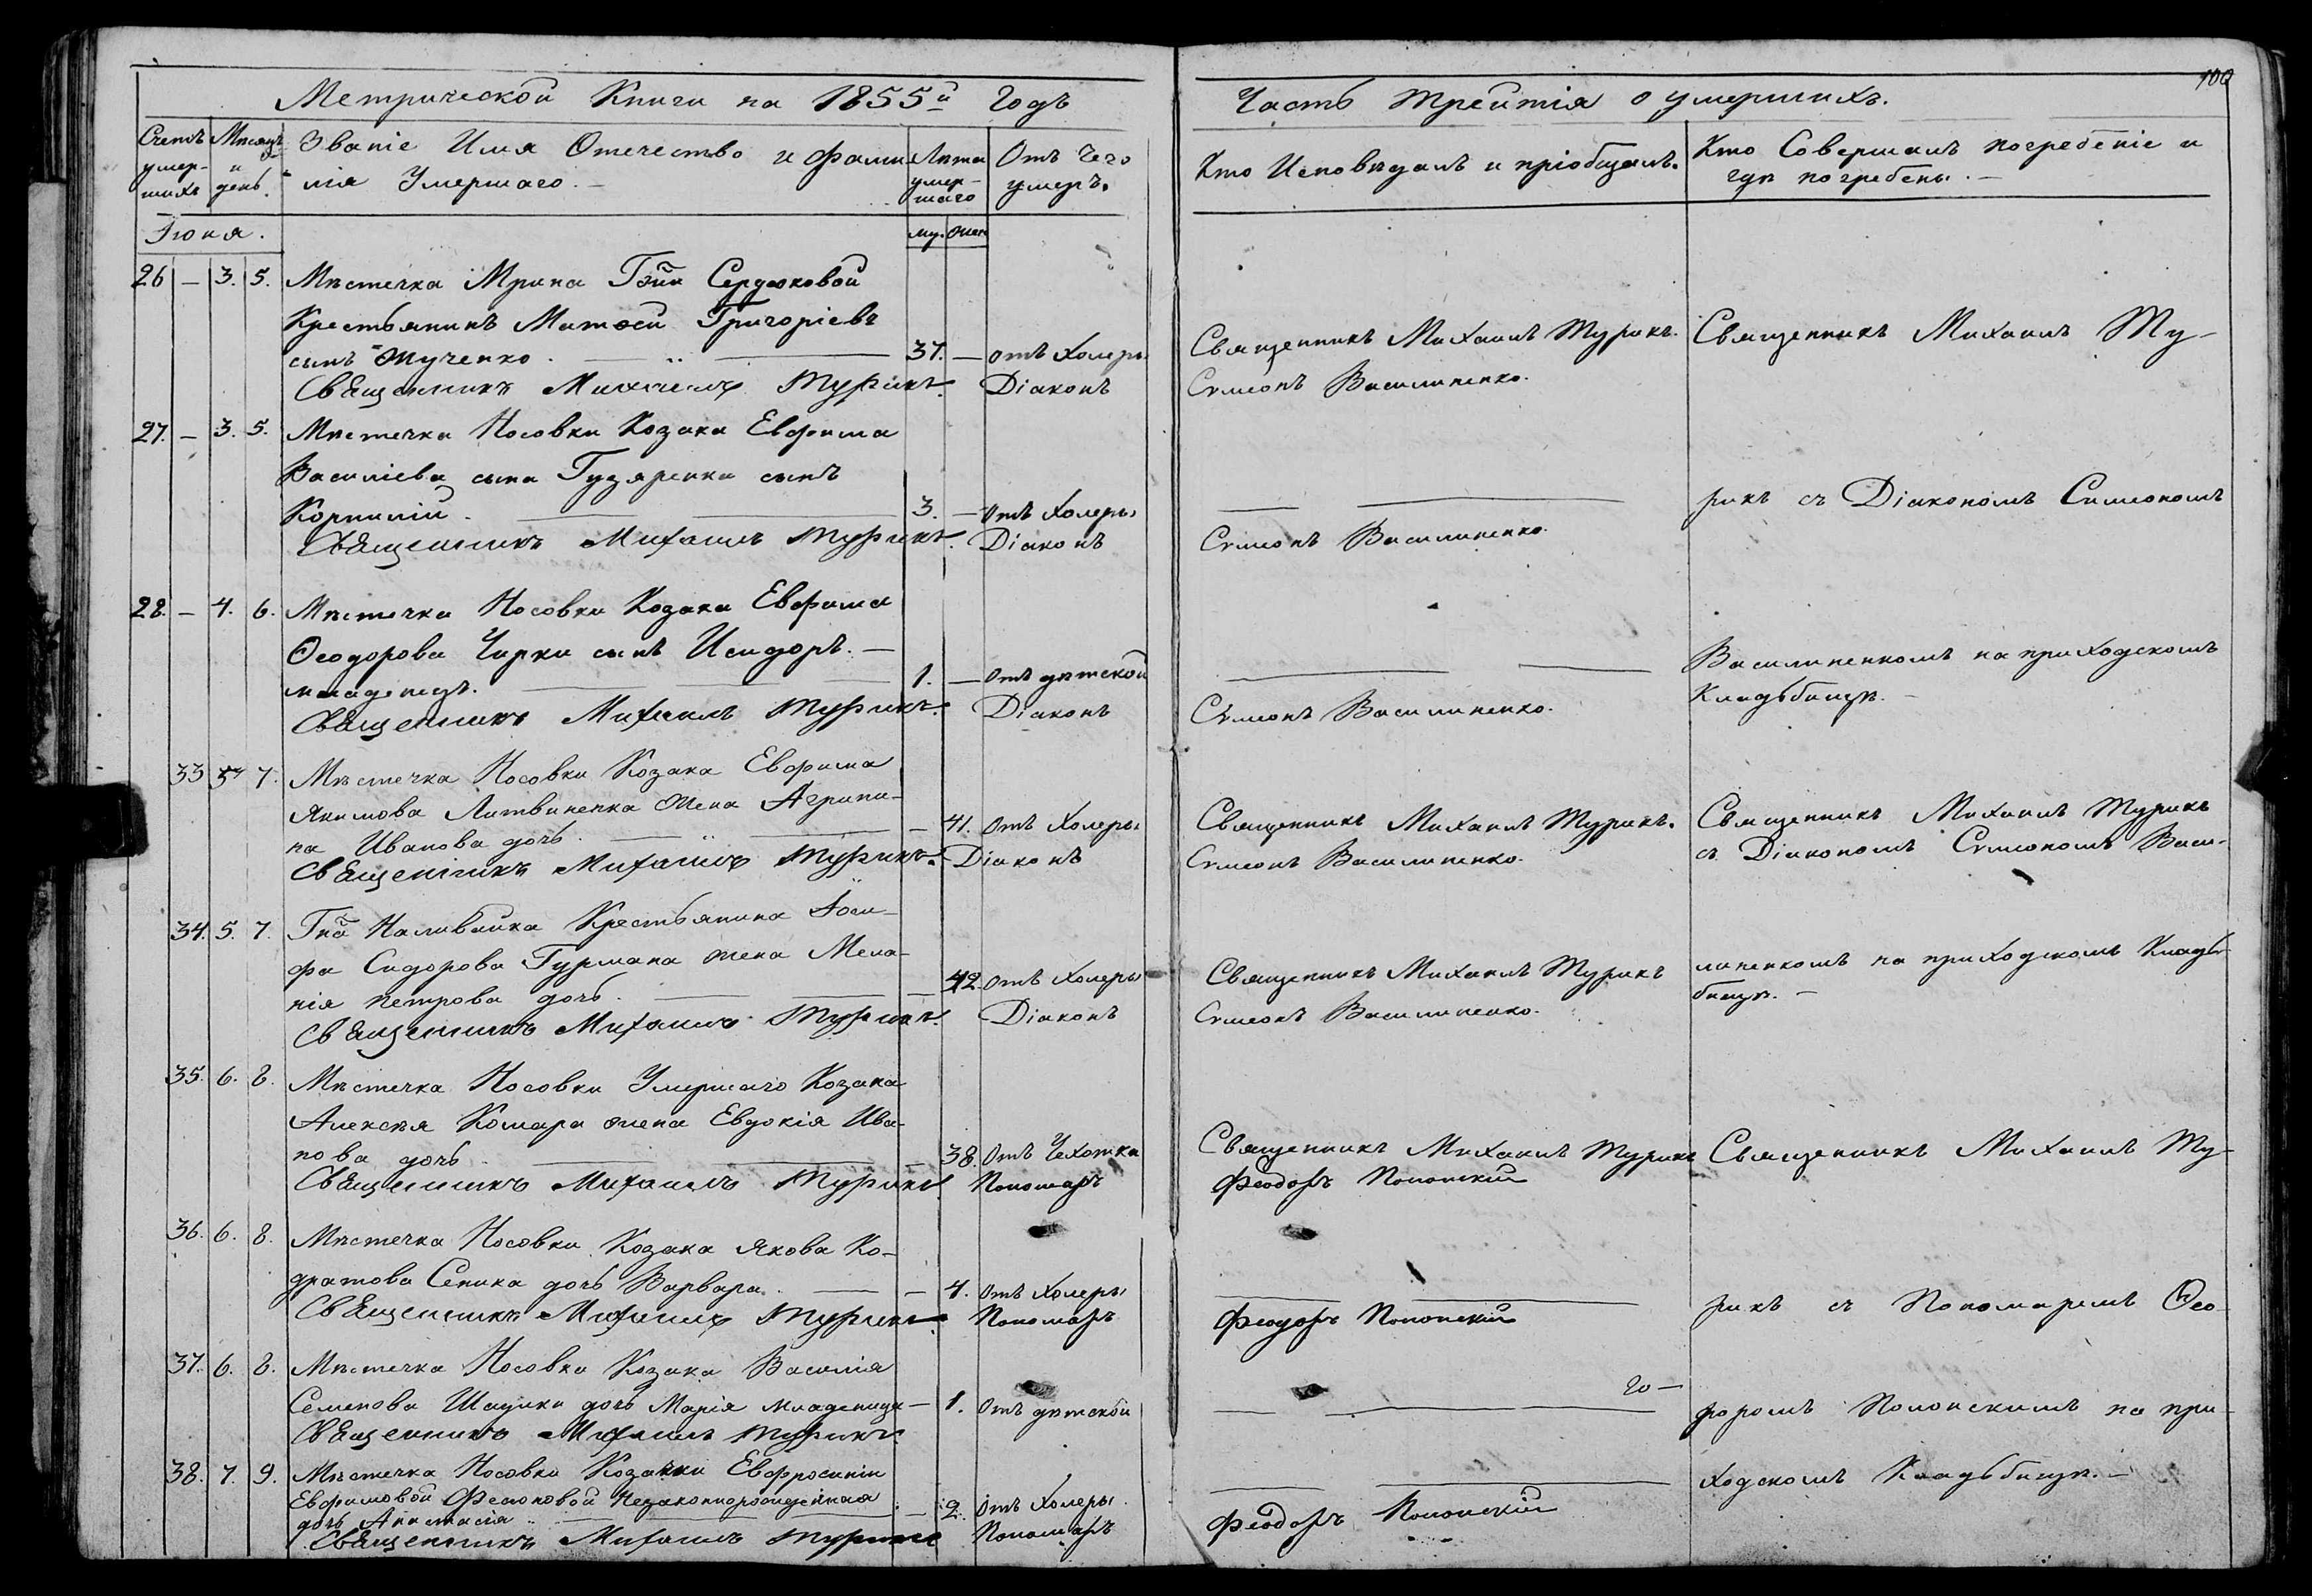 Метрической Книги на 1855й Годъ
Счетъ умер-шихъ
Мѣсяцъ и день.
Званіе Имя Отечество и фами-
лія Умершаго. —
Лѣта умер-шаго
Отъ чего умеръ.
му. жен
Іюня.
26 — 3. 5. Мѣстечка Мрина Гжи Сердюковой
Крестьянинъ Матѳей Григоріевъ
сынъ Жученко. — 37. — отъ Холеры
Священникъ Михаилъ Турикъ. Діаконъ
27. — 3. 5. Мѣстечка Носовки Козака Евфима
Василіева сына Гузяренка сынъ
Корнилій. — 3. — Отъ Холеры
Священникъ Михаилъ Турикъ. Діаконъ
28. — 4. 6. Мѣстечка Носовки Козака Евфима
Ѳеодорова Чирки сынъ Исидоръ. —
младенецъ. — 1. — Отъ дѣтской
Священникъ Михаилъ Турикъ. Діаконъ
33 5 7. Мѣстечка Носовки Козака Евфима
Якимова Литвиненка жена Агрипи-
на Иванова дочь. — 41. Отъ Холеры
Священникъ Михаилъ Турикъ. Діаконъ
34. 5. 7. Гна Наливайка Крестьянина Іоси-
фа Сидорова Гурмана жена Мела-
нія Петрова дочь. — 42. Отъ Холеры
Священникъ Михаилъ Турикъ. Діаконъ
35. 6. 8. Мѣстечка Носовки Умершаго Козака
Алексѣя Комара жена Евдокія Ива-
нова дочь. — 38. Отъ Чехотки
Священникъ Михаилъ Турикъ Пономарь
36. 6. 8. Мѣстечка Носовки Козака Якова Ко-
дратова Сепика дочь Варвара. — 4. Отъ Холеры
Священникъ Михаилъ Турикъ Пономарь
37. 6. 8. Мѣстечка Носовки Козака Василія
Семенова Шадики дочь Марія младеница — 1. Отъ дѣтской
Священникъ Михаилъ Турикъ.
38. 7. 9. Мѣстечка Носовки Козачки Евфросиніи
Евфимовой Незаконнорожденная
дочь Анастасія — 2. Отъ Холеры.
Священникъ Михаилъ Турикъ Пономарь
100
Часть третія о умершихъ.
Кто Исповѣдалъ и пріобщалъ.
Кто Совершалъ погребеніе и
гдѣ погребены. —
Священникъ Михаилъ Турикъ. Священникъ Михаилъ Ту-
Сѵмеонъ Василиненко.
рикъ съ Діакономъ Симеономъ
Сѵмеонъ Василиненко.
Василиненкомъ на приходскомъ
Кладьбищѣ. —
Сѵмеонъ Василиненко.
Священникъ Михаилъ Турикъ. Священникъ Михаилъ Турикъ
Сѵмеонъ Василиненко. съ Діакономъ Сѵмеономъ Васи-
Священникъ Михаилъ Турикъ линенкомъ на приходскомъ Кладь-
бищѣ. —
Сѵмеонъ Василиненко.
Священникъ Михаилъ Турикъ Священникъ Михаилъ Ту-
Феодоръ Полонскій
рикъ съ Пономаремъ Ѳео-
Феодоръ Полонскій
го —
доромъ Полонскимъ на при-
ходскомъ Кладьбищѣ. —
Феодоръ Полонскій